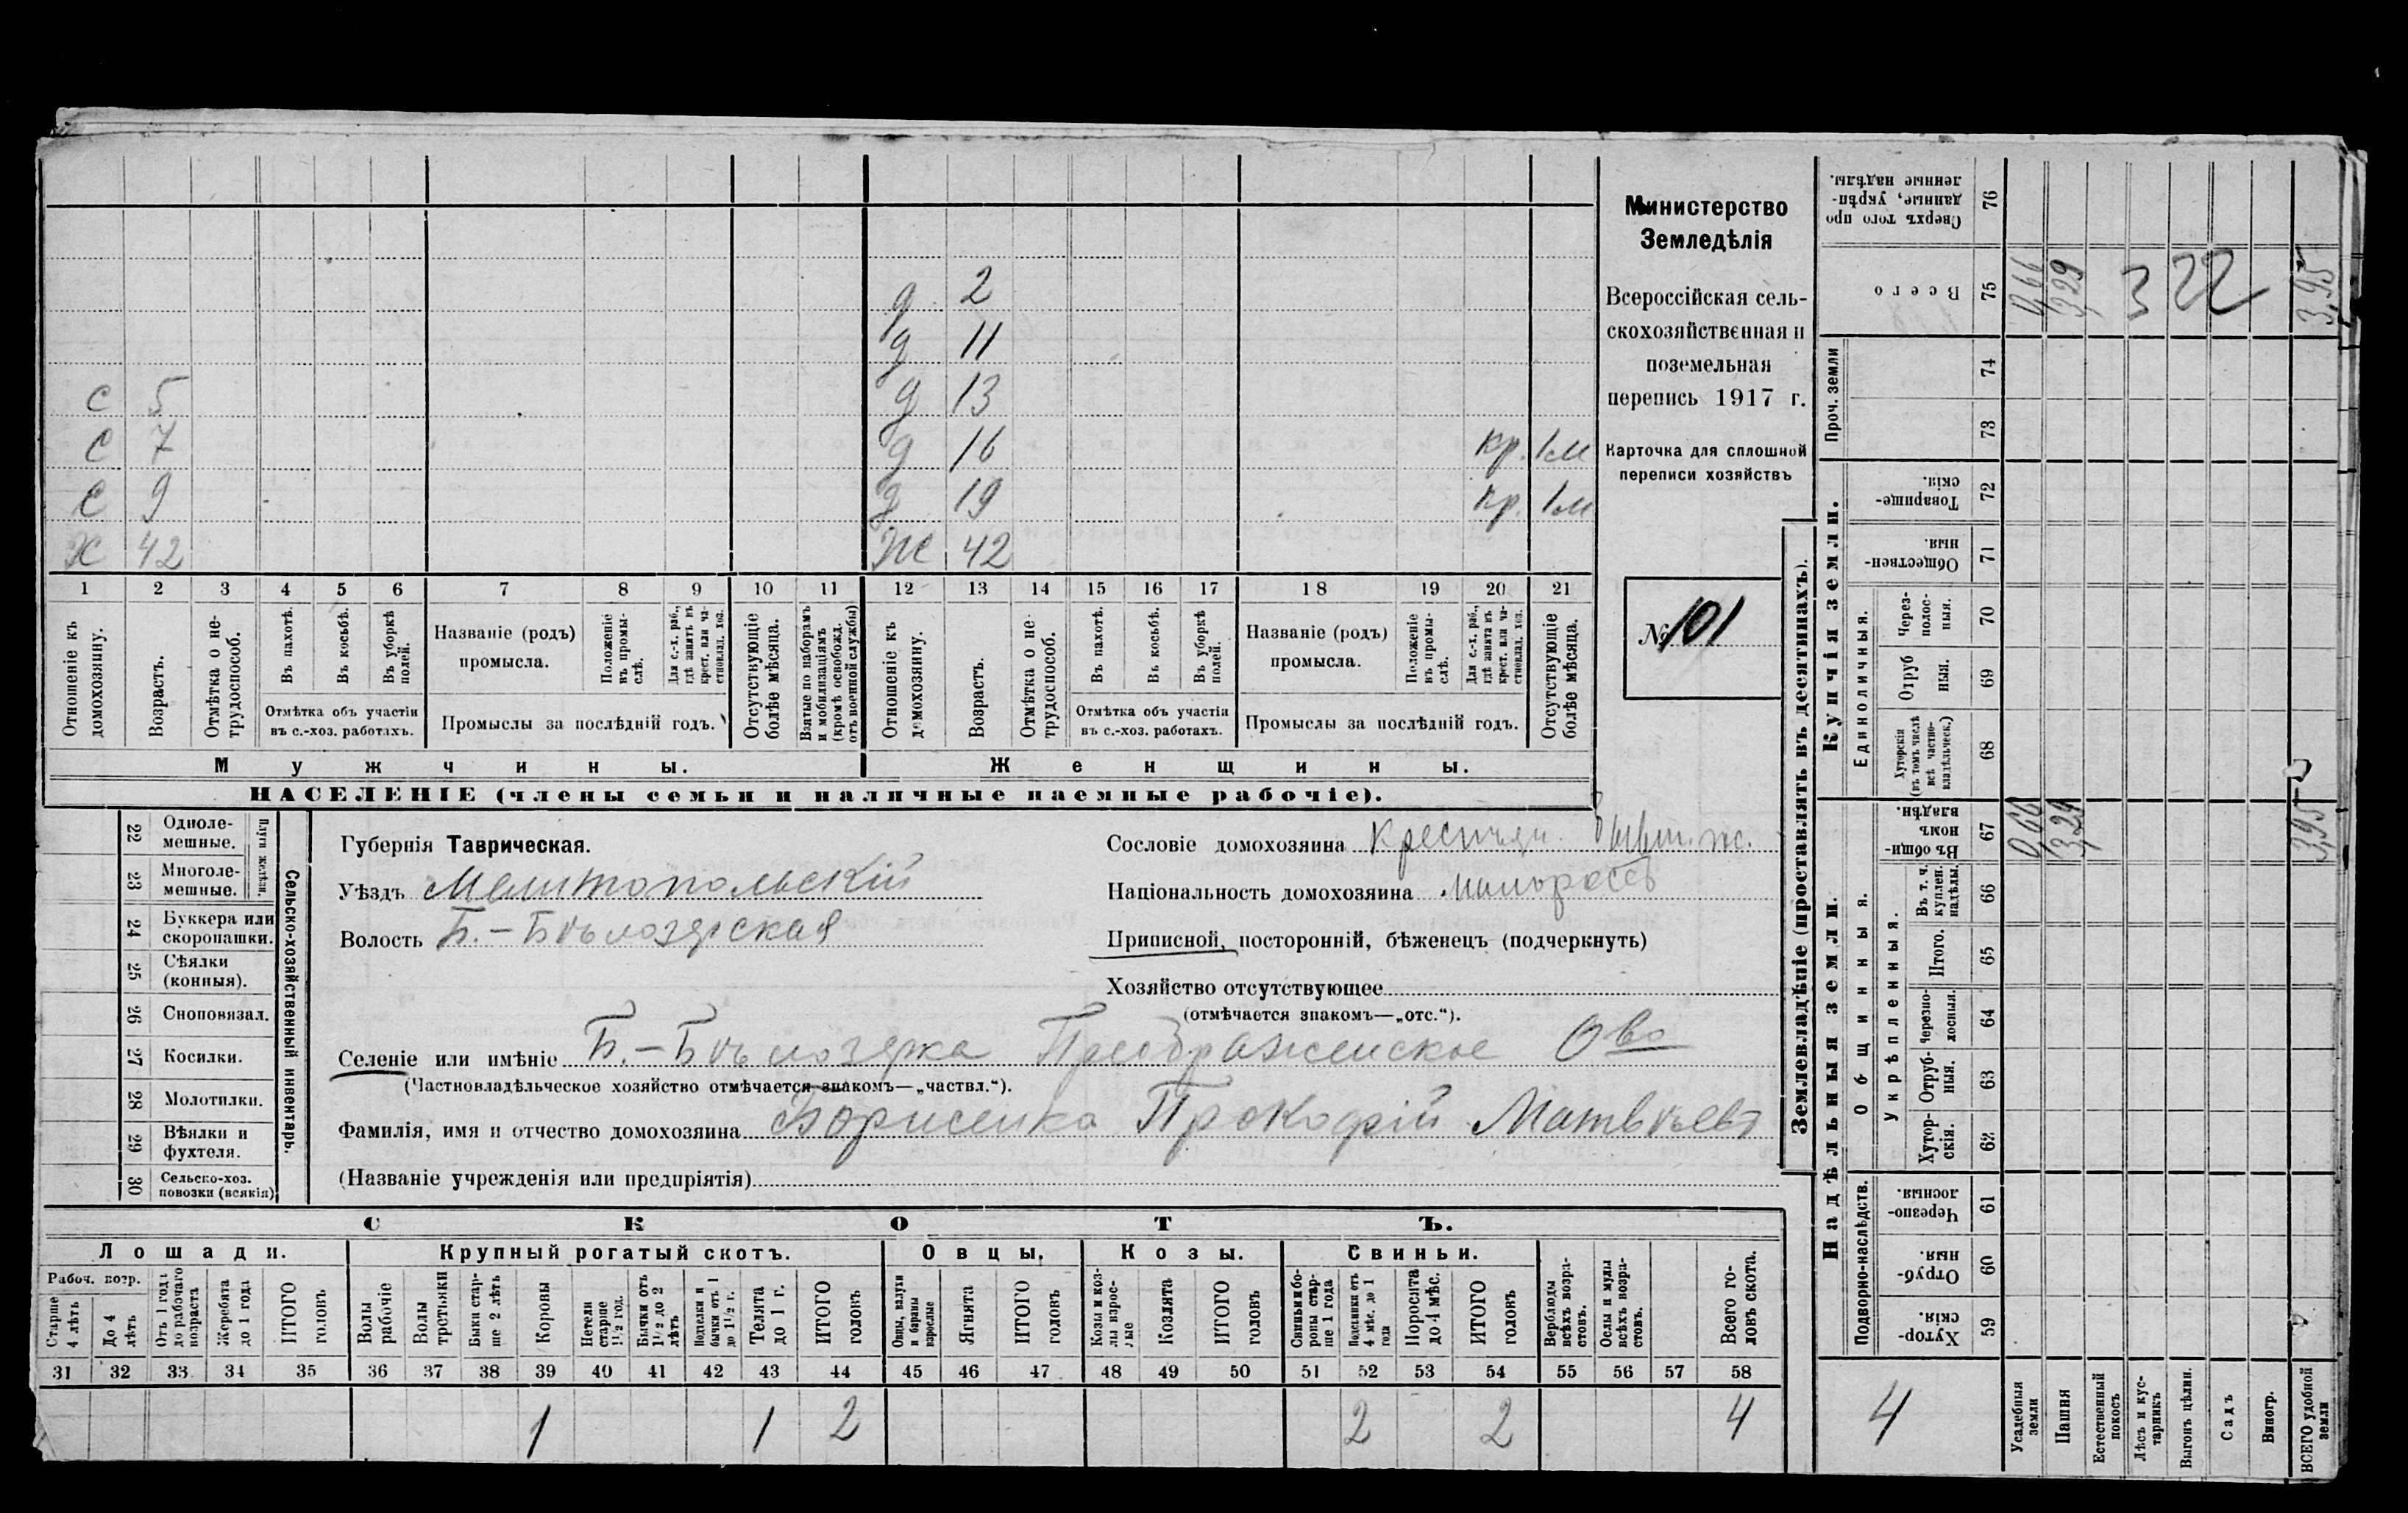 Министерство
Земледѣлія
Всероссійская сель-
скохозяйственная и
поземельная
перепись 1917 г.
Карточка для сплошной
переписи хозяйствъ
№ 101
д 2
д 11
с 5 д 13
с 7 д 16 кр. 1м
с 9 д 19 кр. 1м
Х 42 Ж 42
1 2 3 4 5 6 7 8 9 10 11 12 13 14 15 16 17 18 19 20 21
Отношеніе къ домохозяину.
Возрастъ.
Отмѣтка о не-трудоспособ.
Въ пахотѣ.
Въ косьбѣ.
Въ уборкѣ полей.
Отмѣтка объ участіи въ с.-хоз. работахъ.
Названіе (родъ) промысла.
Положеніе въ промы-слѣ.
Для с.-х. раб., гдѣ занятъ въ крест. или ча-стновлад. хоз.
Промыслы за послѣдній годъ.
Отсутствующіе болѣе мѣсяца.
Взятые по наборамъ и мобилизаціямъ (кромѣ освобожд. отъ военной службы)
Отношеніе къ домохозяину.
Возрастъ.
Отмѣтка о не-трудоспособ.
Въ пахотѣ.
Въ косьбѣ.
Въ уборкѣ полей.
Отмѣтка объ участіи въ с.-хоз. работахъ.
Названіе (родъ) промысла.
Положеніе въ промы-слѣ.
Для с.-х. раб., гдѣ занята въ крест. или ча-стновлад. хоз.
Промыслы за послѣдній годъ.
Отсутствующіе болѣе мѣсяца.
Мужчины. Женщины.
НАСЕЛЕНІЕ (члены семьи и наличные наемные рабочіе).
22 Однолемешные.
23 Многолемешные.
Плуги желѣзн.
24 Буккера или скоропашки.
25 Сѣялки (конныя).
26 Сноповязал.
27 Косилки.
28 Молотилки.
29 Вѣялки и фухтеля.
30 Сельско-хоз. повозки (всякія)
Сельско-хозяйственный инвентарь.
Губернія Таврическая.
Уѣздъ Мелитопольскій
Волость Б.-Бѣлозерская
Сословіе домохозяина
Національность домохозяина малороссъ
Приписной, посторонній, бѣженецъ (подчеркнуть)
Хозяйство отсутствующее
(отмѣчается знакомъ—„отс.“).
Селеніе или имѣніе Б.-Бѣлозерка Преображенское Ово
(Частновладѣльческое хозяйство отмѣчается знакомъ—„частвл.“).
Фамилія, имя и отчество домохозяина Борисенко Прокофій Матвѣевъ
(Названіе учрежденія или предпріятія)
СКОТЪ.
Лошади. Крупный рогатый скотъ. Овцы. Козы. Свиньи.
Рабоч. возр.
Старше 4 лѣтъ
До 4 лѣтъ
Отъ 1 года до рабочаго возраста
Жеребята до 1 года
ИТОГО головъ
Волы рабочіе
Волы третьяки
Быки стар-ше 2 лѣтъ
Коровы
Нетели старше 1½ год.
Бычки отъ 1½ до 2 лѣтъ
Подтелки и бычки отъ 1 до 1½ г.
Телята до 1 г.
ИТОГО головъ
Овцы, валухи и бараны взрослые
Ягнята
ИТОГО головъ
Козы и коз-лы взрос-лые
Козлята
ИТОГО головъ
Свиньи и бо-ровы стар-ше 1 года
Подсвинки отъ 4 мѣс. до 1 года
Поросята до 4 мѣс.
ИТОГО головъ
Верблюды всѣхъ возра-стовъ.
Ослы и мулы всѣхъ возра-стовъ.
Всего го-ловъ скота.
31 32 33 34 35 36 37 38 39 40 41 42 43 44 45 46 47 48 49 50 51 52 53 54 55 56 57 58
1 1 2 2 2 4
Землевладѣніе (проставлять въ десятинахъ).
Надѣльныя земли. Купчія земли. Проч. земли
Подворно-наслѣдств. Общинныя. Единоличныя.
Укрѣпленныя.
59 Хутор-скія.
60 Отруб-ныя.
61 Черезпо-лосныя.
62 Хутор-скія.
63 Отруб-ныя.
64 Черезпо-лосныя.
65 Итого.
66 Въ т. ч. куплен. надѣлы.
67 Въ общи-номъ владѣн.
68 Хуторскія (въ томъ числѣ всѣ частно-владѣльческ.)
69 Отруб ныя.
70 Через-полос-ныя.
71 Обществен-ныя.
72 Товарище-скія.
73
74
75 Всего
76 Сверхъ того про данные, укрѣп-ленные надѣлы.
4
Усадебныя земли 0,66 0,66
Пашня 3,29 3,29
Естественный покосъ
Лѣсъ и кус-тарникъ
Выгонъ цѣлин.
Садъ
Виногр.
ВСЕГО удобной земли 3,95 3,95
3 22